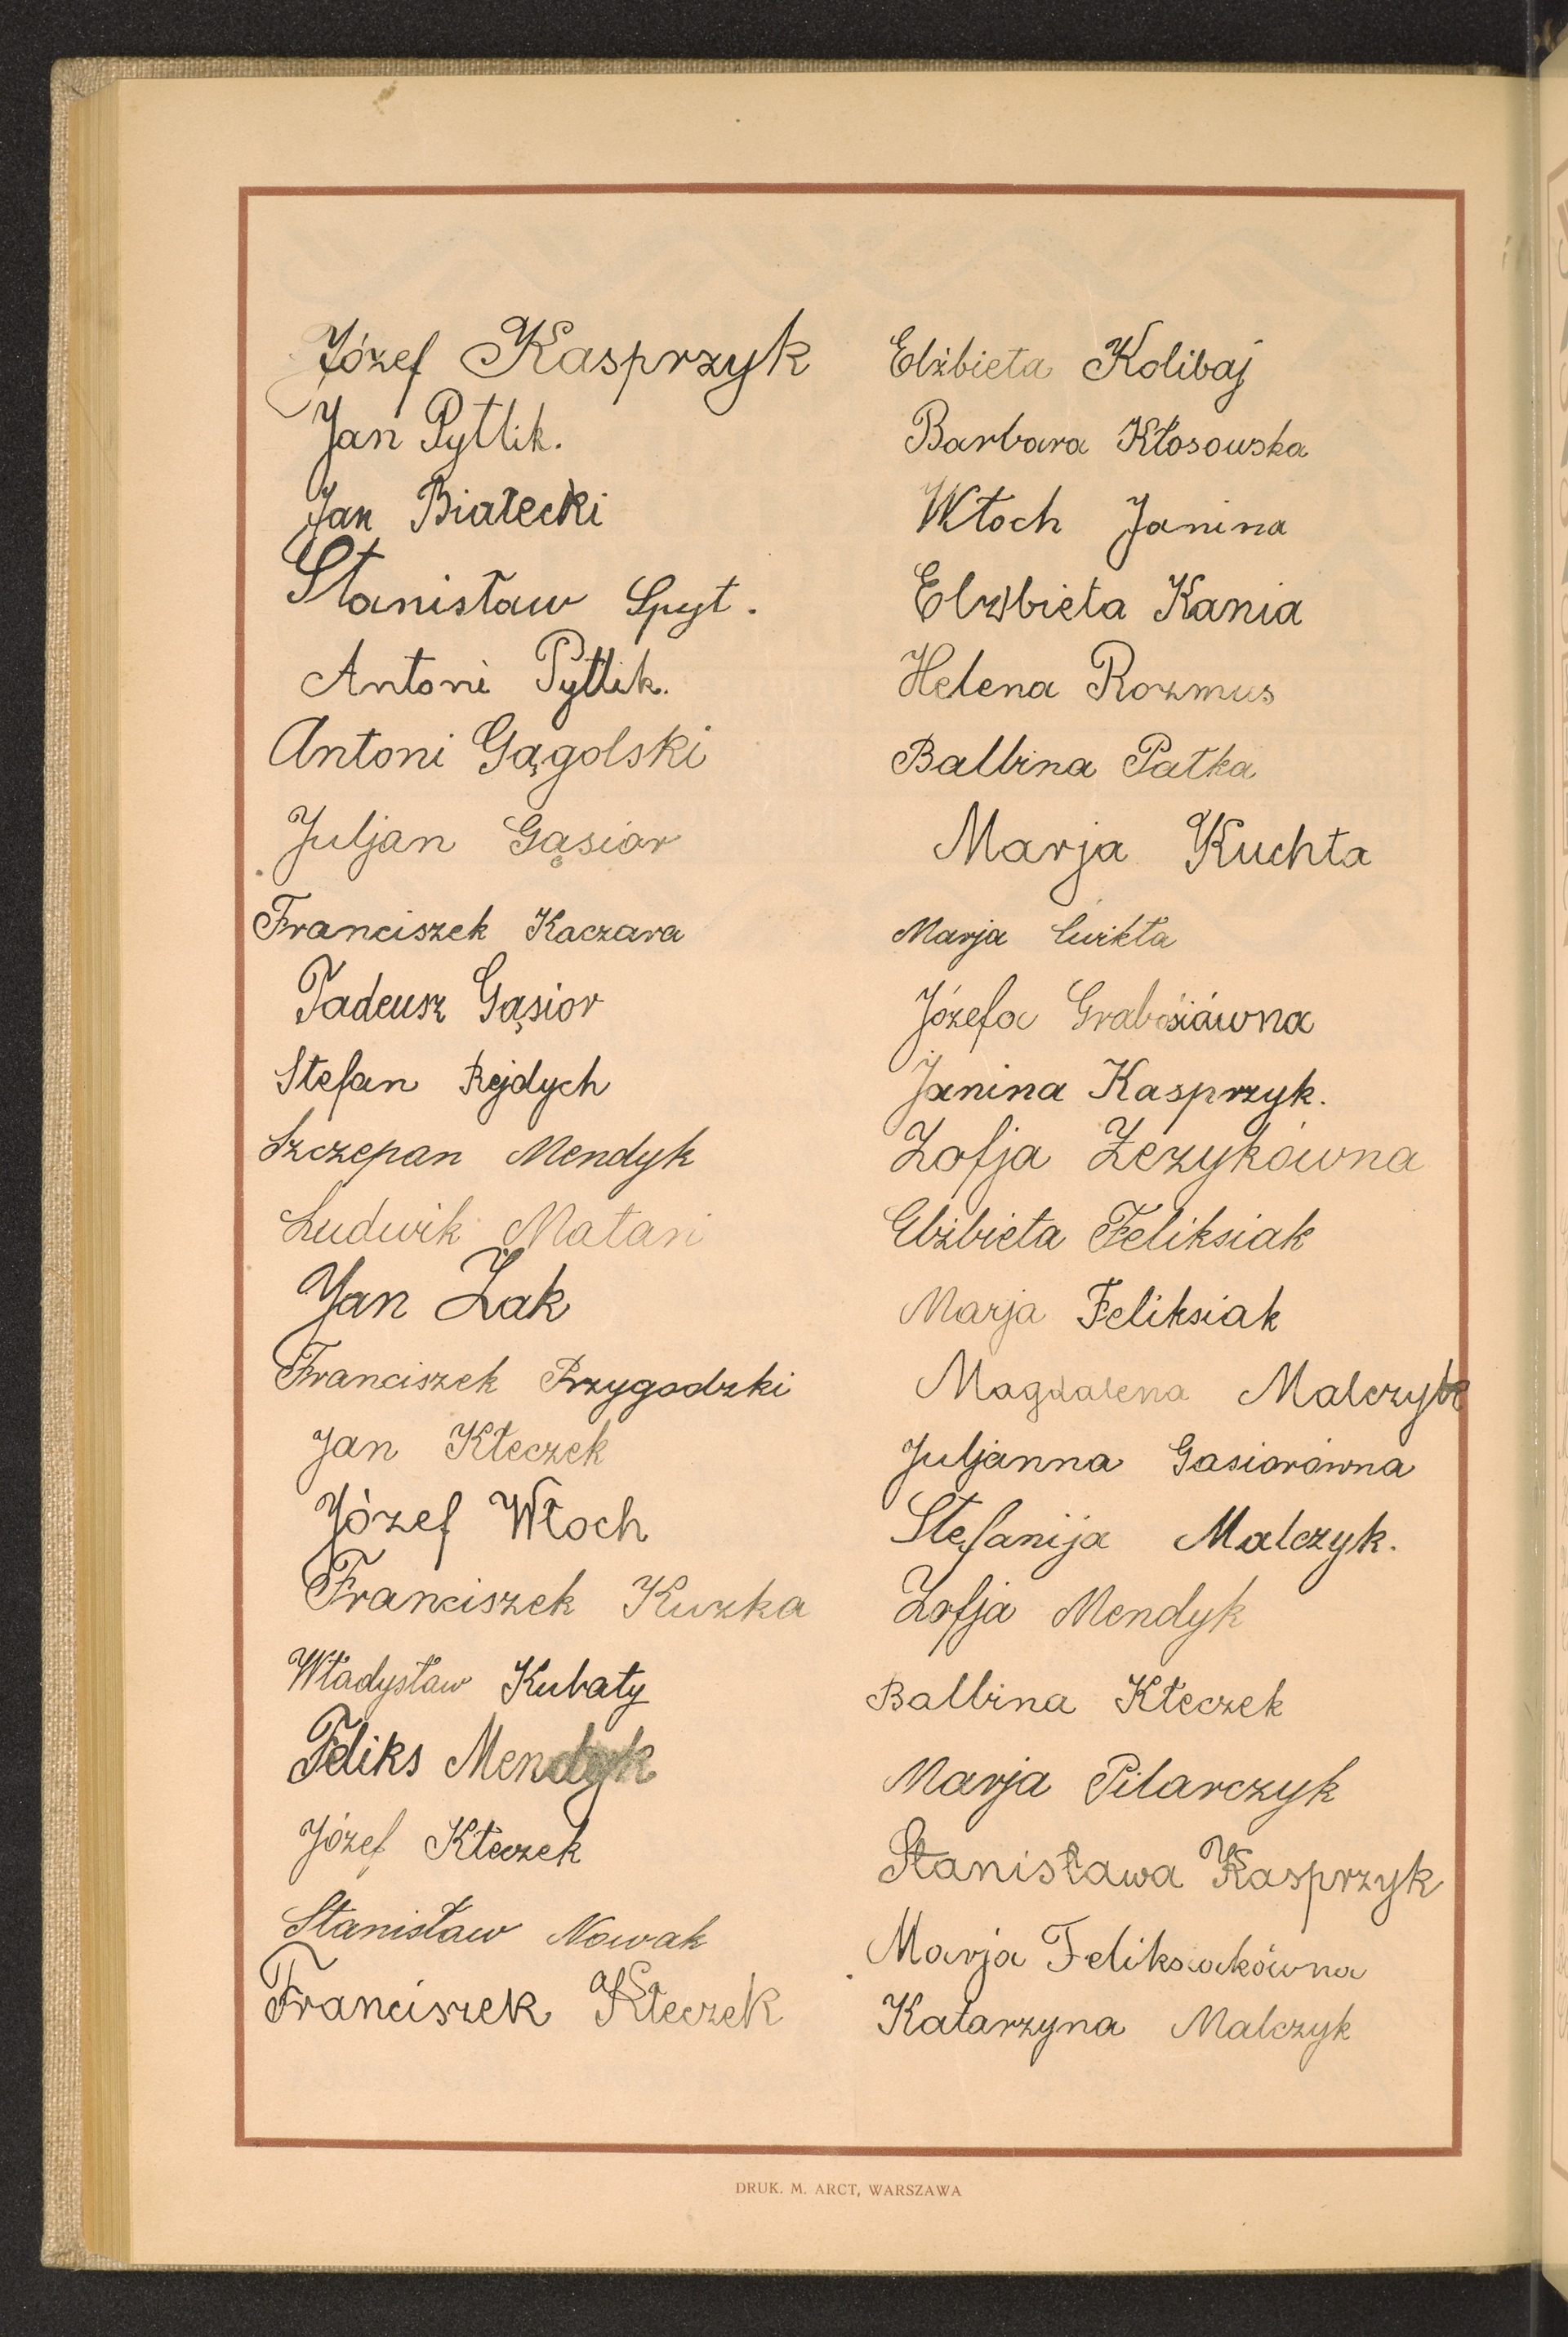 Józef Kasprzyk
Jan Pytlik.
Jan Białecki
Stanisław Spyt.
Antoni Pytlik.
Antoni Gągolski
Juljan Gąsior
Franciszek Kaczara
Tadeusz Gąsior
Stefan Rejdych
Szczepan Mendyk
Ludwik Matan
Jan Żak
Franciszek Przygodzki
Jan Kłeczek
Józef Włoch
Franciszek Kuzka
Władysław Kubaty
Feliks Mendyk
Józef Kłeczek
Stanisław Nowak
Franciszek Kłeczek
Elżbieta Kolibaj
Barbara Kłosowska
Włoch Janina
Elżbieta Kania
Helena Rozmus
Balbina Pałka
Marja Kuchta
Marja Ćwikła
Józefa
Janina Kasprzyk.
Zofja Zezykówna
Elżbieta Feliksiak
Marja Feliksiak
Magdalena Malczyk
Juljanna Gasiorówna
Stefanija Malczyk.
Zofja Mendyk
Balbina Kłeczek
Marja Pilarczyk
Stanisława Kasprzyk
Marja Feliksiakówna
Katarzyna Malczyk
DRUK. M. ARCT, WARSZAWA